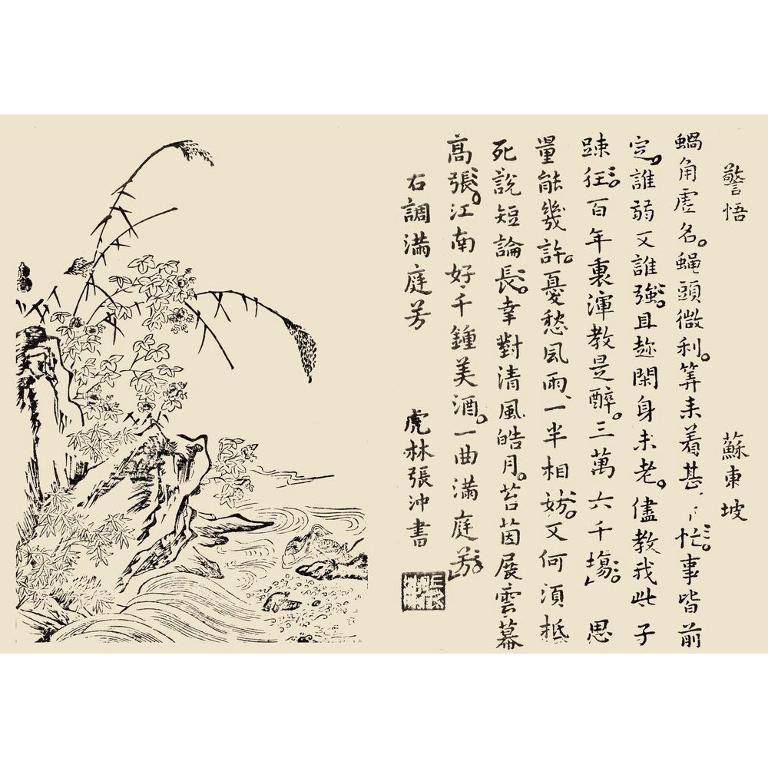 警悟 蘇東坡
蝸角虛名。蠅頭微利。筭来着甚忙。事皆前
定。誰弱又誰強。且趂閑身未老。儘教我些子
踈狂。百年裏渾教是醉。三萬六千塲」。思
量能幾許。憂愁風雨、一半相妨。又何須抵
死說短論長。幸對清風皓月。苔茵展雲幕
高張。江南好千鐘美酒。一曲滿庭芳」。
右調滿庭芳 虎林張沖書